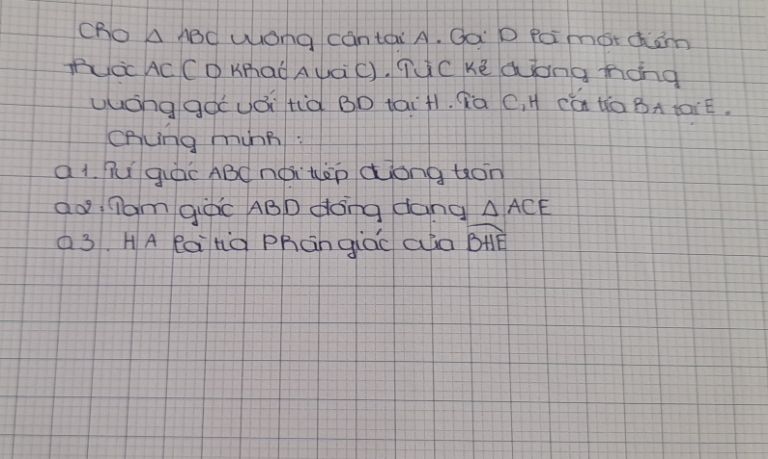 Cho Δ ABC vuông cân tại A. Gọi D là một điểm
thuộc AC (D khác A và C). Từ C kẻ đường thẳng
vuông góc với tia BD tại H. Tia C,H cắt tia BA tại E.
Chứng minh :
a1. Tứ giác ABC nội tiếp đường tròn
a2. Tam giác ABD đồng dạng Δ ACE
a3. HA là tia phân giác của BHE